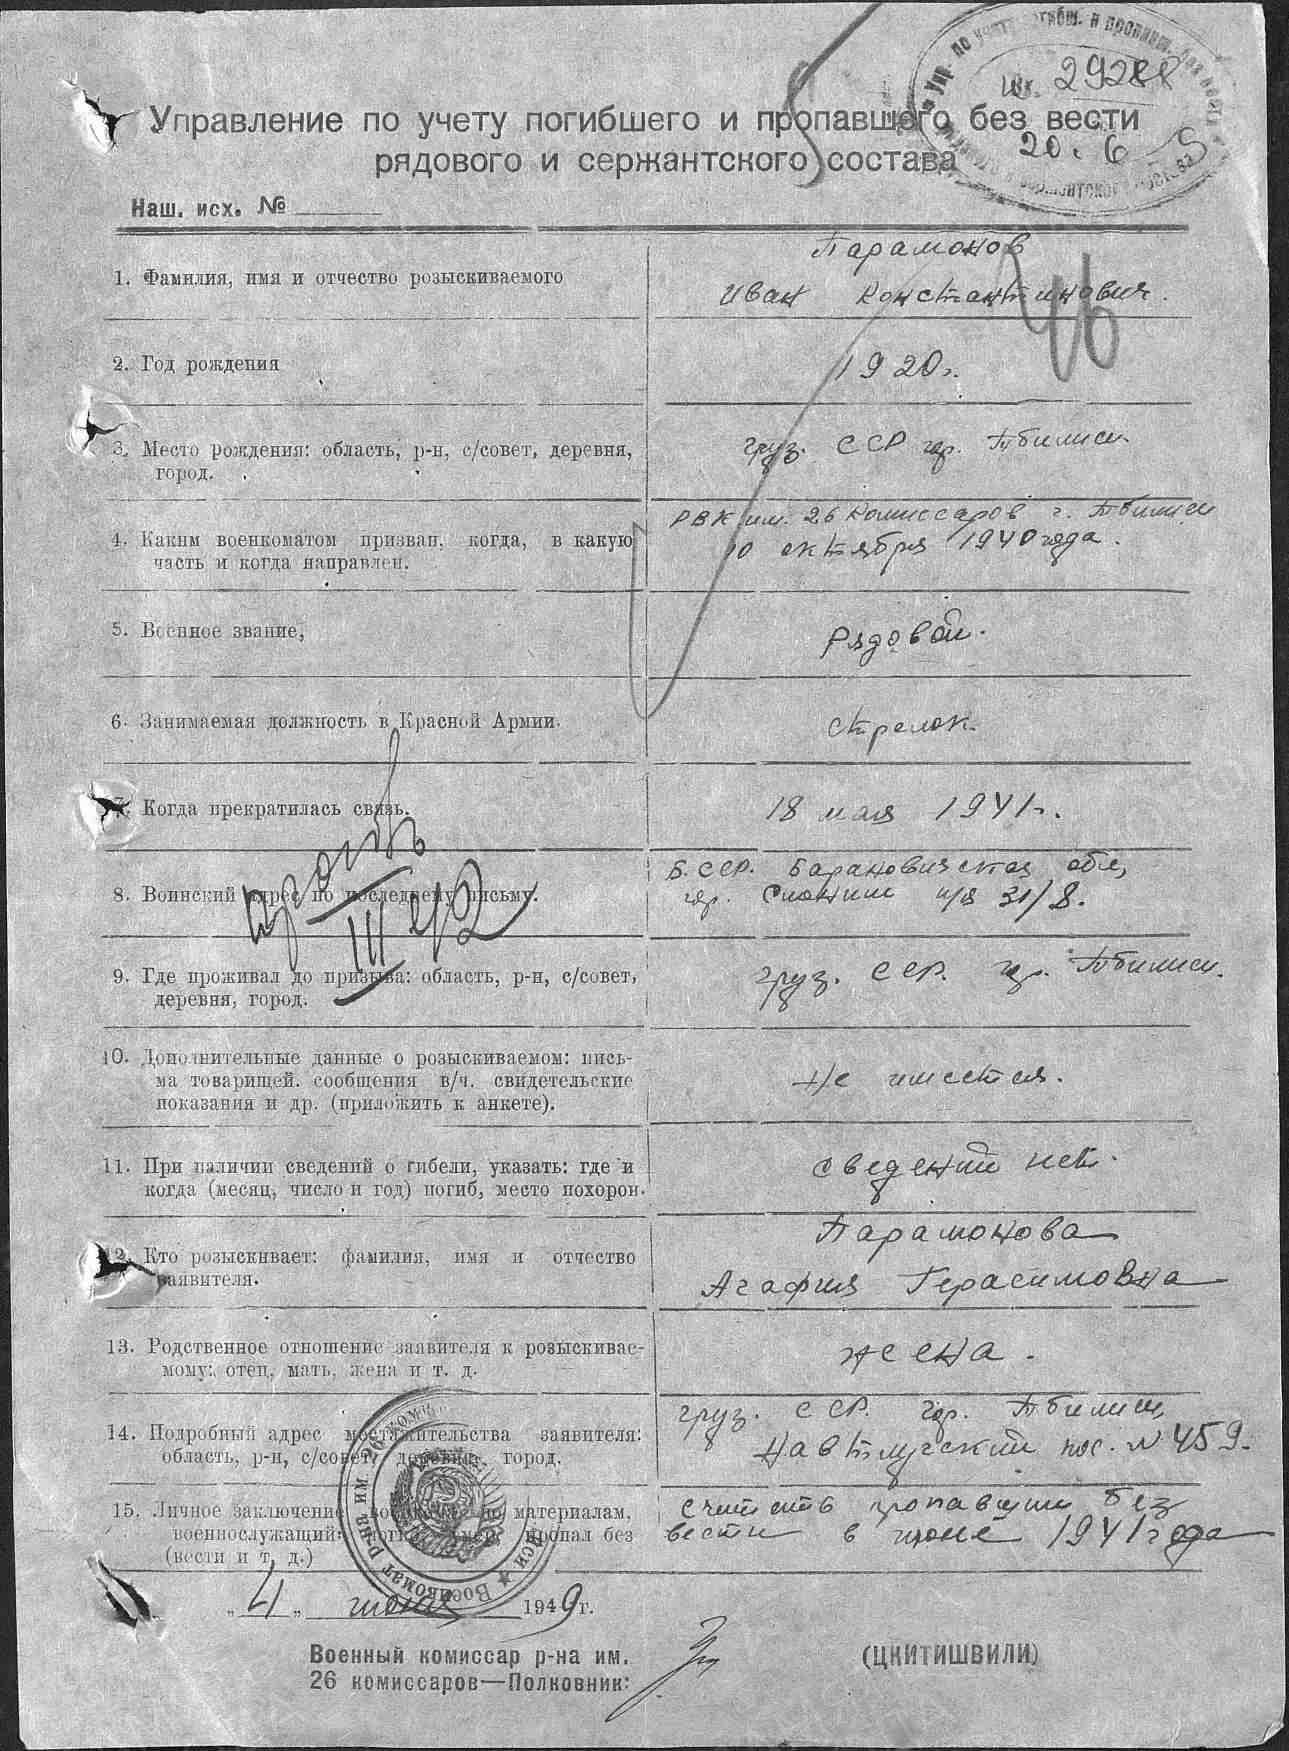 Упр. по учету погибш. и пропавш. без вести
Вх. 29288
20. 6
Управление по учету погибшего и пропавшего без вести
рядового и сержантского состава
Наш. исх. №
Парамонов
1. Фамилия, имя и отчество розыскиваемого
Иван Константинович.
46
2. Год рождения
1920 г.
3. Место рождения: область, р-н, с/совет, деревня,
город.
груз. ССР гор. Тбилиси.
РВК им. 26 Комиссаров г. Тбилиси
4. Каким военкоматом призван, когда, в какую
часть и когда направлен.
10 октября 1940 года.
5. Военное звание,
Рядовой.
6. Занимаемая должность в Красной Армии.
Стрелок.
7. Когда прекратилась связь.
18 мая 1941 г.
8. Воинский адрес по последнему письму.
Б.ССР. Барановичская обл,
гор. Слоним п/я 31/8.
9. Где проживал до призыва: область, р-н, с/совет,
деревня, город.
груз. ССР. гор. Тбилиси.
10. Дополнительные данные о розыскиваемом: пись-
ма товарищей. сообщения в/ч. свидетельские
показания и др. (приложить к анкете).
Не имеется.
11. При наличии сведений о гибели, указать: где и
когда (месяц, число и год) погиб, место похорон.
Сведений нет.
Парамонова
12. Кто розыскивает: фамилия, имя и отчество
заявителя.
Агафия Герасимовна
13. Родственное отношение заявителя к розыскивае-
мому: отец, мать, жена и т. д.
жена.
груз. ССР. гор. Тбилиси,
14. Подробный адрес местожительства заявителя:
область, р-н, с/совет, деревня, город.
Навтлугский пос. № 459.
15. Личное заключение военкома по материалам,
военнослужащий: погиб, умер, пропал без
(вести и т. д.)
считать пропавшим без
вести в июне 1941 года
Военкомат р-на им. 26 ком
„4„ июня 1949 г.
Военный комиссар р-на им.
26 комиссаров—Полковник:
(ЦКИТИШВИЛИ)